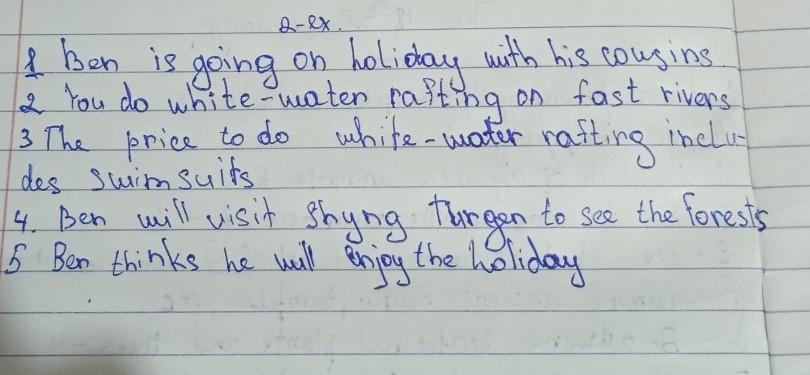 2-ex.
1 Ben is going on holiday with his cousins
2 You do white-water rafting on fast rivers
3 The price to do white-water rafting inclu-
des swimsuits
4. Ben will visit Shyng Turgen to see the forests
5 Ben thinks he will enjoy the holiday